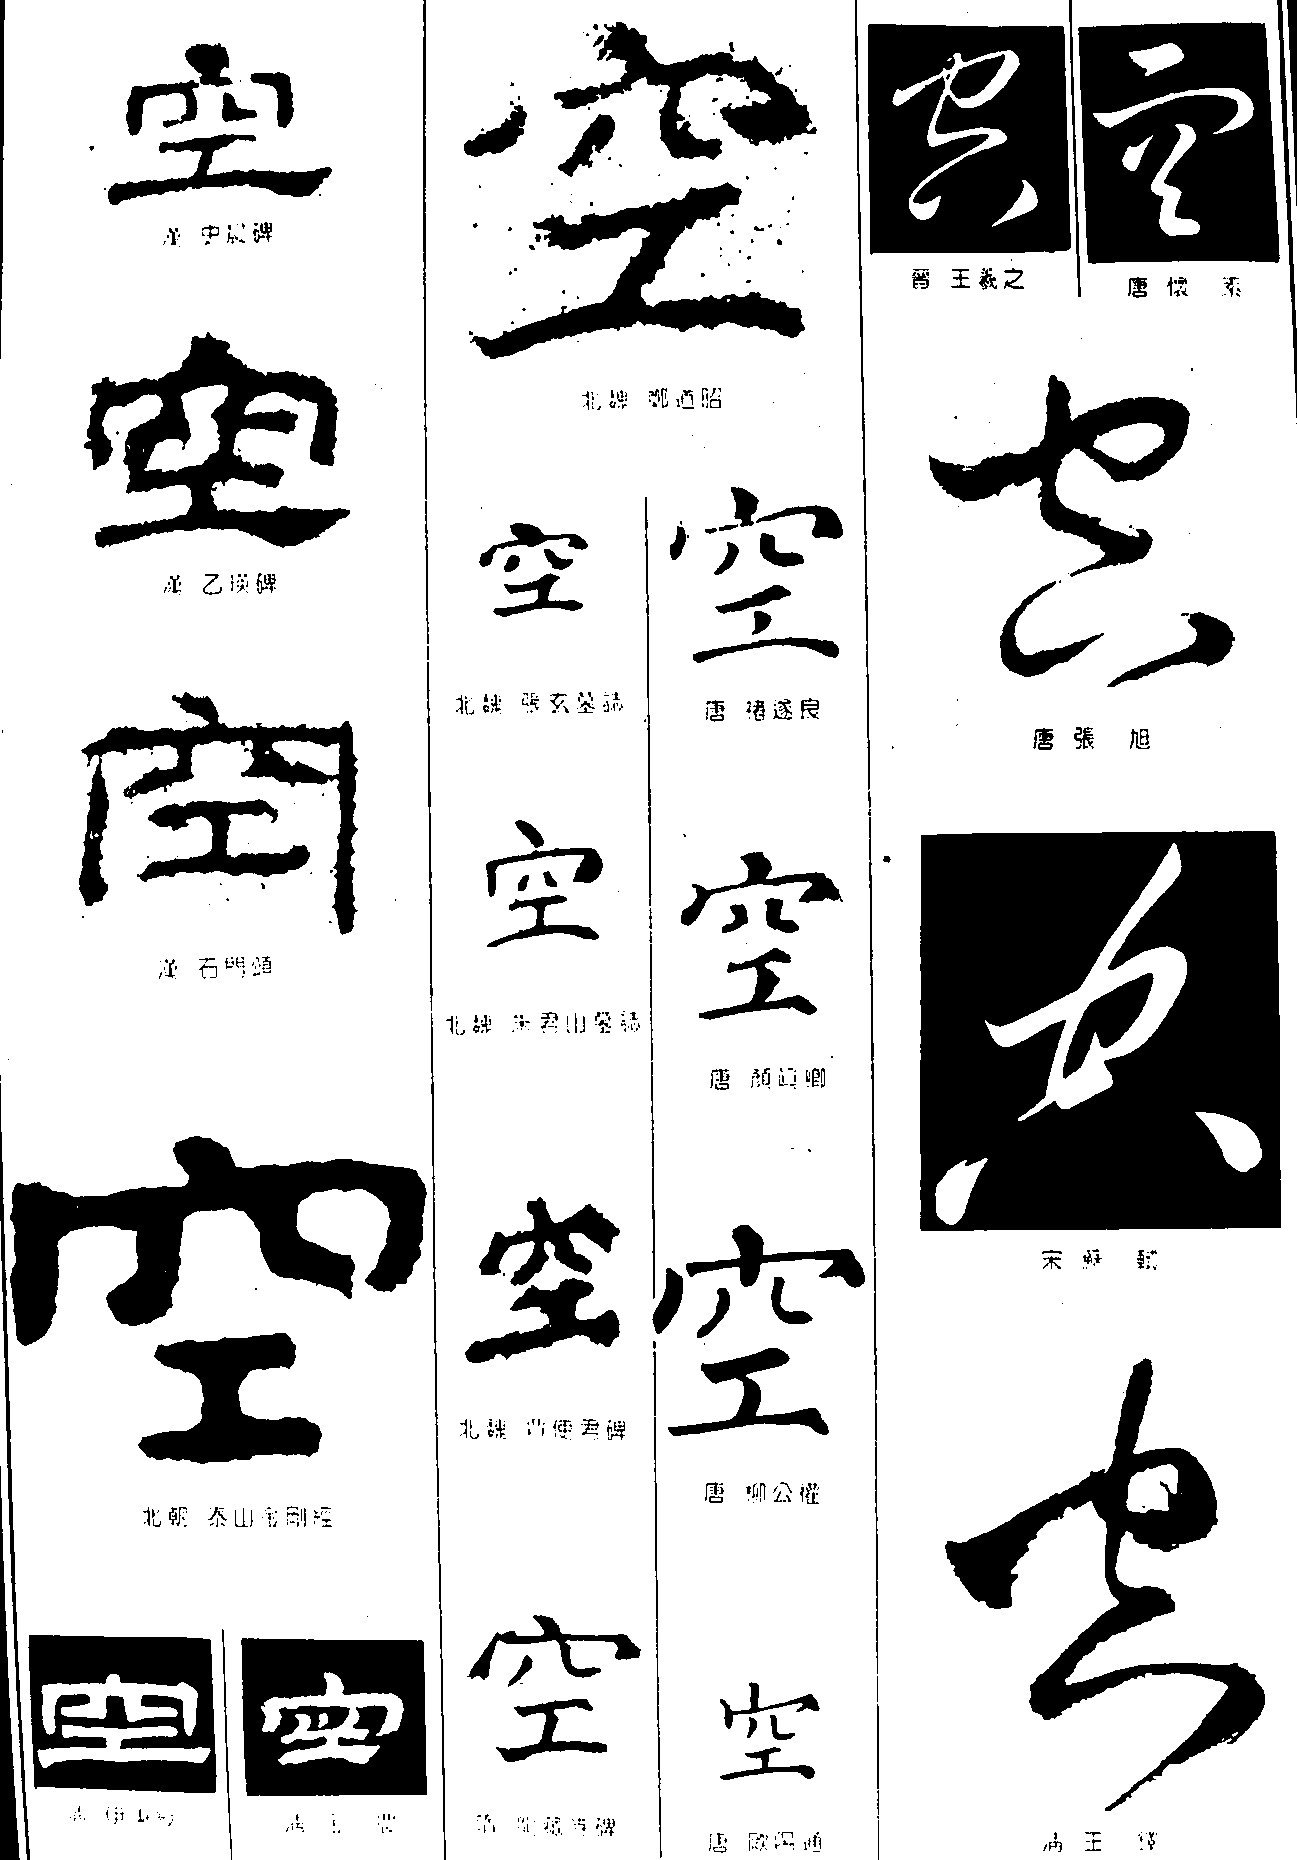 空
漢 史晨碑
空
漢 乙瑛碑
空
漢 石門頌
空
北朝 泰山金剛經
空
空
空
北魏 鄭道昭
空
北魏 張玄墓誌
空
北魏 朱君山墓誌
空
北魏
使君碑
空
隋
藏寺碑
空
唐 褚遂良
空
唐 顏眞卿
空
唐 柳公權
空
唐 歐陽通
空
晉 王羲之
空
唐 懷 素
空
唐 張 旭
空
宋 蘇 軾
空
清 王 鐸